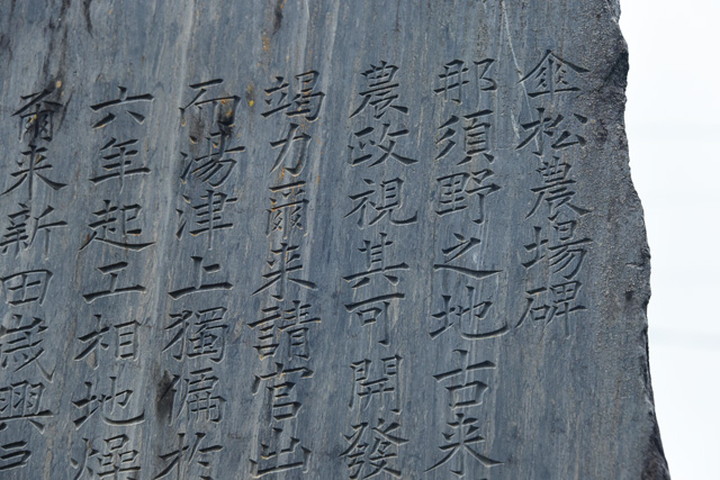 傘松農場碑
那須野之地古来
農政視其可開發
竭力爾来請官出
而湯津上獨偏於
六年起工相地燥
爾来新田歳興戸